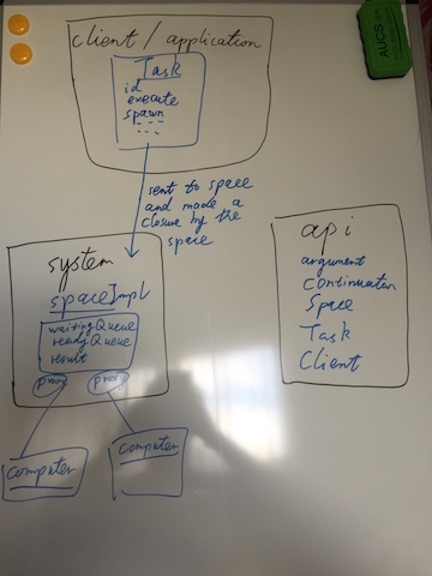 client / application
Task
id
execute
spawn
...
sent to space
and made a
closure by the
space
AUCS
system
spaceImpl
waitingQueue
readyQueue
result
proxy
proxy
computer
computer
api
argument
Continuation
Space
Task
Client